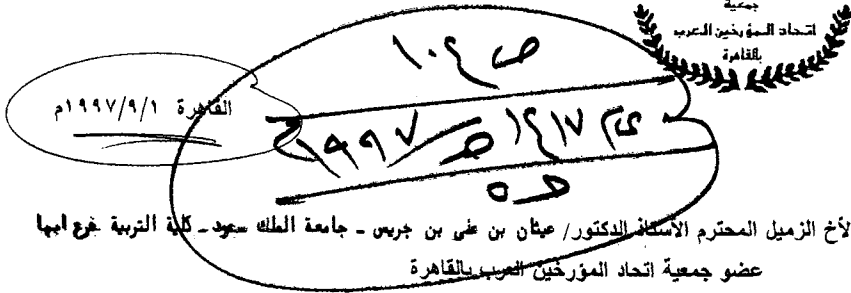 جمعية
اتحاد المؤرخين العرب
بالقاهرة
ص ١٠٤
القاهرة ١٩٩٧/٩/١م
١٤١٧هـ/١٩٩٧م
حـ٥
لأخ الزميل المحترم الأستاذ الدكتور/ عيثان بن على بن جريس - جامعة الملك سعود - كلية التربية فرع ابها
عضو جمعية اتحاد المؤرخين العرب بالقاهرة